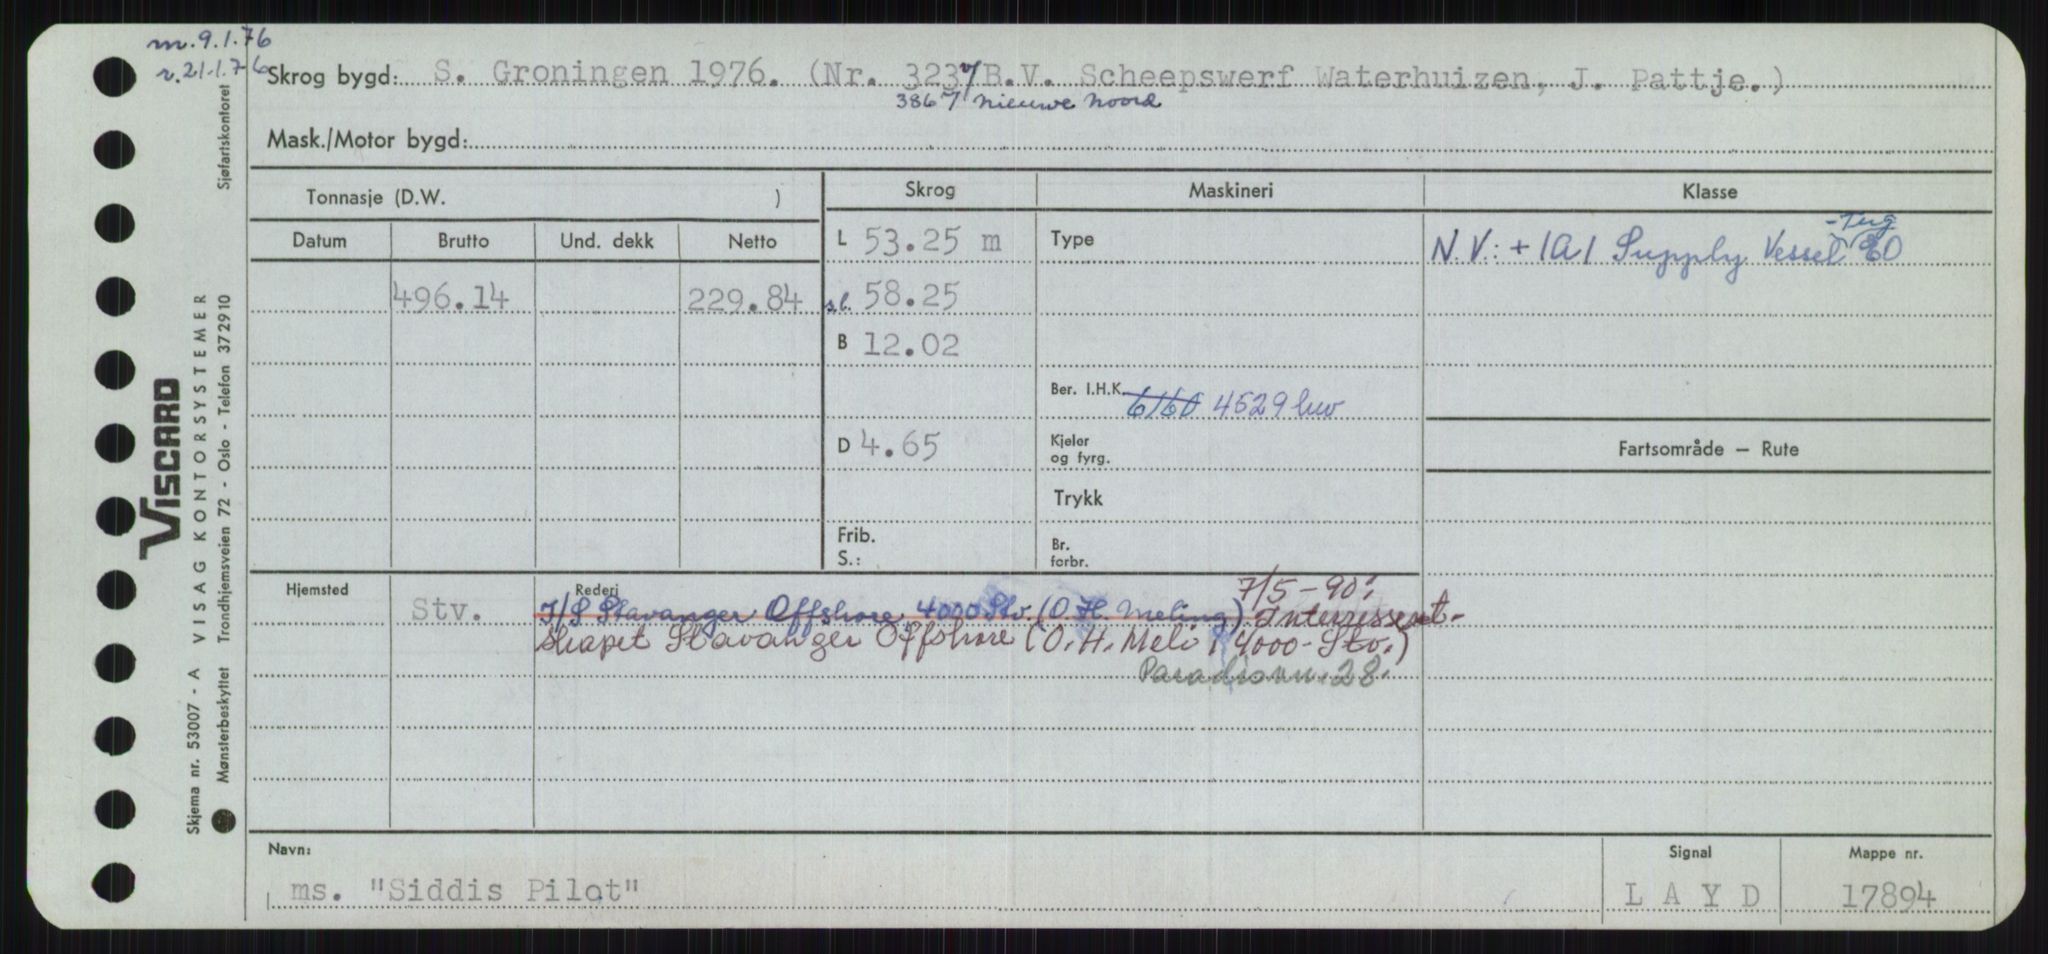 m. 9.1.76
r. 21.1.76
Skrog bygd: S. Groningen 1976. (Nr. 323, B.V. Scheepswerf Waterhuizen, J. Pattje.)
386 7 nieuwe noord
Mask./Motor bygd:
Tonnasje (D.W. )
Skrog
Maskineri
Klasse
Datum
Brutto
Und. dekk
Netto
L 53.25 m
Type
- Tug
N.V.: + 1A1 Supply Vessel E0
496.14
229.84
s.l. 58.25
B 12.02
Ber. I.H.K. 6160 4529 hw
D 4.65
Kjeler
og fyrg.
Fartsområde — Rute
Trykk
Frib.
S.:
Br.
forbr.
Hjemsted
Stv.
Rederi
7/5-90:
I/S Stavanger Offshore, 4000 Stv. (O.H. Meling). Interessent-
skapet Stavanger Offshore (O.H. Meli , 4000-Stv.)
28.
Navn:
ms. "Siddis Pilot"
Signal
L A Y D
Mappe nr.
17894
Sjøfartskontoret
VISCARD
VISAG KONTORSYSTEMER
Trondhjemsveien 72 - Oslo - Telefon 37 29 10
Skjema nr. 53007 - A
Mønsterbeskyttet